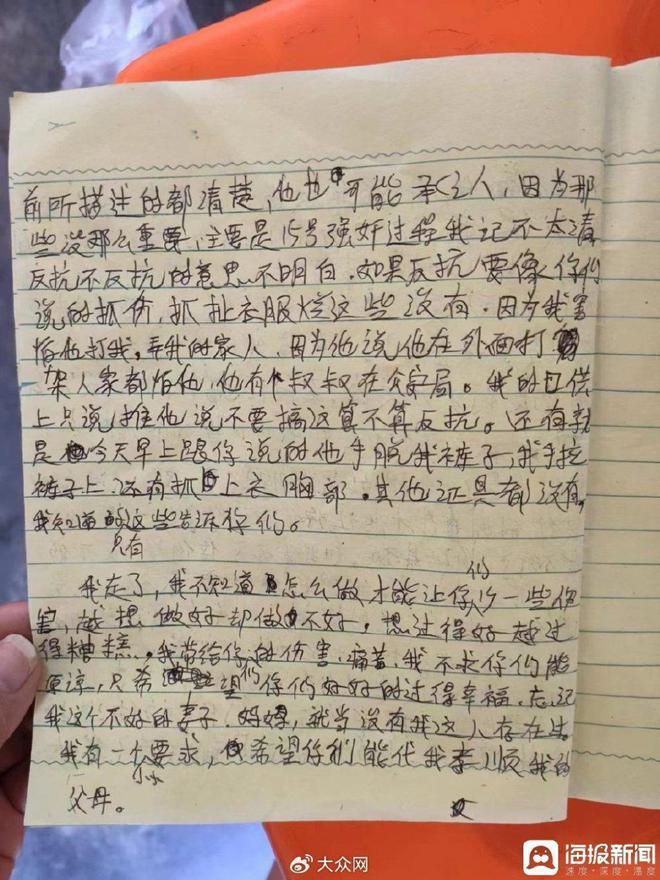 前所描述的都清楚,他也可能承认人,因为那
些没那么重要,主要是15号强奸过程我记不太清
反抗不反抗的意思不明白.如果反抗要像你们
说的抓伤,抓扯衣服烂这些没有.因为我害
怕他打我,弄我的家人,因为他说他在外面打
架人家都怕他,他有个叔叔在公安局。我的口供
上只说推他说不要搞这算不算反抗。还有就
是今天早上跟你说的他手脱我裤子,我手拉
裤子上,还有抓上衣胸部.其他证具都没有,
我知道的只有这些告诉你们。
我走了,我不知道怎么做才能让你们少一些伤
害,越想做好却做不好,想过得好越过
得糟糕。我带给你们的伤害,痛苦,我不求你们能
原谅,只希望你们好好的过得幸福,忘记
我这个不好的妻子.妈妈,就当没有我这人存在过.
我有一个小小要求,希望你们能代我孝顺我的
父母。
大众网
海报新闻
速度·深度·温度